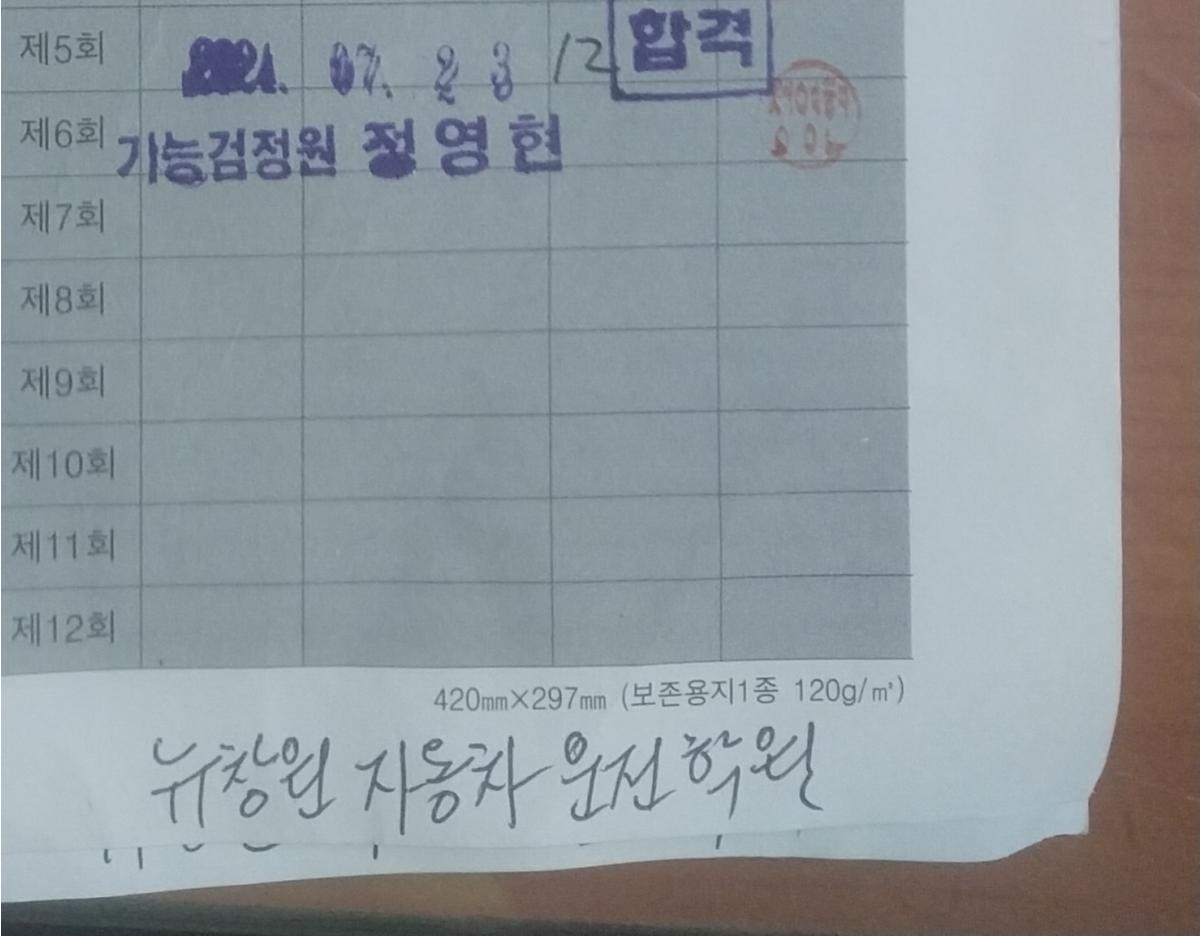 제5회 2021. 07. 23 12 합격
제6회 기능검정원 정영헌
제7회
제8회
제9회
제10회
제11회
제12회
420mm×297mm (보존용지1종 120g/㎡)
뉴창원 자동차 운전학원